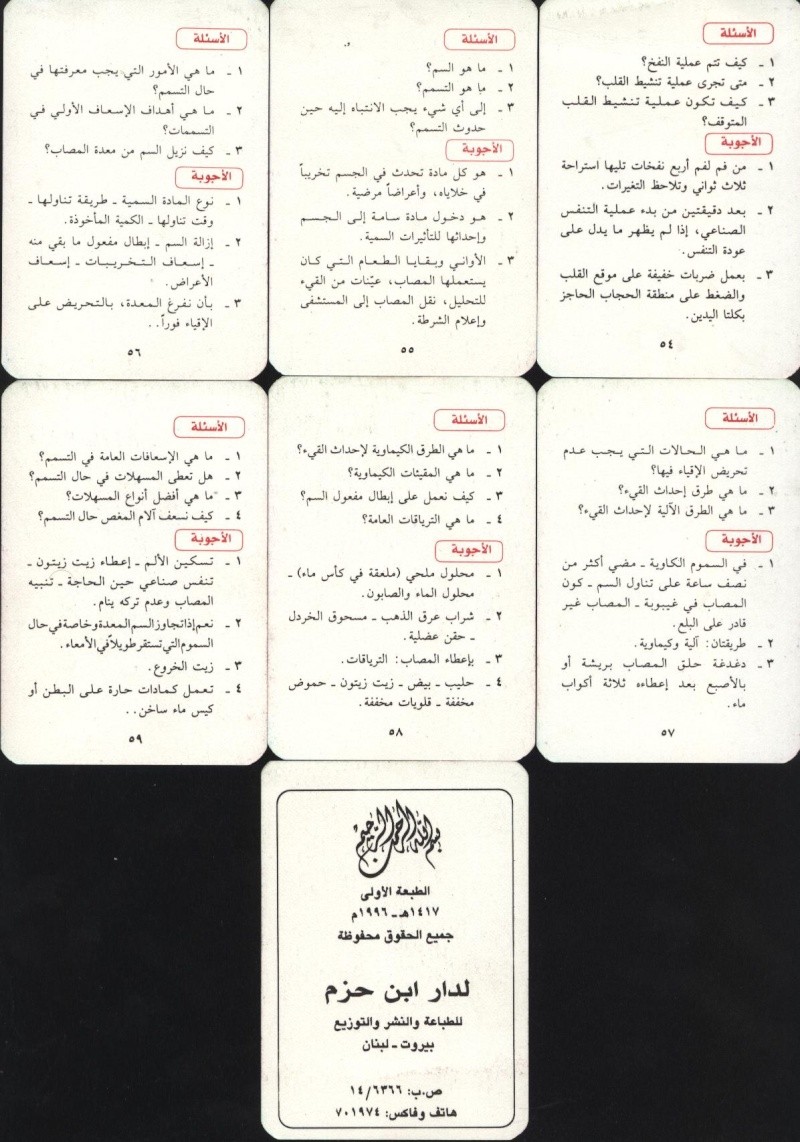 الأسئلة
١ - كيف تتم عملية النفخ؟
٢ - متى تجرى عملية تنشيط القلب؟
٣ - كيف تكون عملية تنشيط القلب
المتوقف؟
الأجوبة
١ - من فم لفم أربع نفخات تليها استراحة
ثلاث ثواني وتلاحظ التغيرات.
٢ - بعد دقيقتين من بدء عملية التنفس
الصناعي، إذا لم يظهر ما يدل على
عودة التنفس.
٣ - بعمل ضربات خفيفة على موقع القلب
والضغط على منطقة الحجاب الحاجز
بكلتا اليدين.
٥٤
الأسئلة
١ - ما هو السم؟
٢ - ما هو التسمم؟
٣ - إلى أي شيء يجب الانتباه إليه حين
حدوث التسمم؟
الأجوبة
١ - هو كل مادة تحدث في الجسم تخريباً
في خلاياه، وأعراضاً مرضية.
٢ - هو دخول مادة سامة إلى الجسم
وإحداثها للتأثيرات السمية.
٣ - الأواني وبقايا الطعام التي كان
يستعملها المصاب، عيّنات من القيء
للتحليل، نقل المصاب إلى المستشفى
وإعلام الشرطة.
٥٥
الأسئلة
١ - ما هي الأمور التي يجب معرفتها في
حال التسمم؟
٢ - ما هي أهداف الإسعاف الأولي في
التسممات؟
٣ - كيف نزيل السم من معدة المصاب؟
الأجوبة
١ - نوع المادة السمية - طريقة تناولها -
وقت تناولها - الكمية المأخوذة.
٢ - إزالة السم - إبطال مفعول ما بقي منه
- إسعاف التخريبات - إسعاف
الأعراض.
٣ - بأن نفرغ المعدة، بالتحريض على
الإقياء فوراً..
٥٦
الأسئلة
١ - ما هي الحالات التي يجب عدم
تحريض الإقياء فيها؟
٢ - ما هي طرق إحداث القيء؟
٣ - ما هي الطرق الآلية لإحداث القيء؟
الأجوبة
١ - في السموم الكاوية - مضي أكثر من
نصف ساعة على تناول السم - كون
المصاب في غيبوبة - المصاب غير
قادر على البلع.
٢ - طريقتان: آلية وكيماوية.
٣ - دغدغة حلق المصاب بريشة أو
بالأصبع بعد إعطاءه ثلاثة أكواب
ماء.
٥٧
الأسئلة
١ - ما هي الطرق الكيماوية لإحداث القيء؟
٢ - ما هي المقيئات الكيماوية؟
٣ - كيف نعمل على إبطال مفعول السم؟
٤ - ما هي الترياقات العامة؟
الأجوبة
١ - محلول ملحي (ملعقة في كأس ماء) -
محلول الماء والصابون.
٢ - شراب عرق الذهب - مسحوق الخردل
- حقن عضلية.
٣ - بإعطاء المصاب: الترياقات.
٤ - حليب - بيض - زيت زيتون - حموض
مخففة - قلويات مخففة.
٥٨
الأسئلة
١ - ما هي الإسعافات العامة في التسمم؟
٢ - هل تعطى المسهلات في حال التسمم؟
٣ - ما هي أفضل أنواع المسهلات؟
٤ - كيف نسعف آلام المغص حال التسمم؟
الأجوبة
١ - تسكين الألم - إعطاء زيت زيتون -
تنفس صناعي حين الحاجة - تنبيه
المصاب وعدم تركه ينام.
٢ - نعم إذا تجاوز السم المعدة وخاصة في حال
السموم التي تستقر طويلاً في الأمعاء.
٣ - زيت الخروع.
٤ - تعمل كمادات حارة على البطن أو
كيس ماء ساخن..
٥٩
بسم الله الرحمن الرحيم
الطبعة الأولى
١٤١٧هـ - ١٩٩٦م
جميع الحقوق محفوظة
لدار ابن حزم
للطباعة والنشر والتوزيع
بيروت - لبنان
ص.ب: ١٤/٦٣٦٦
هاتف وفاكس: ٧٠١٩٧٤